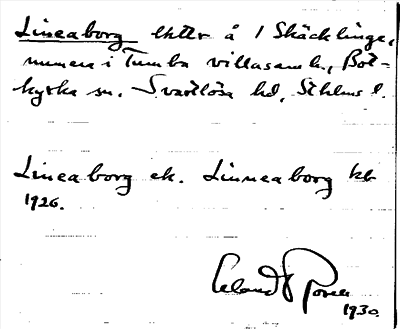 Lineaborg efter å 1 Skäcklinge,
numera i Tumba villasamh., Bot-
kyrka sn. Svartlösa hd, Sthlms l.
Lineaborg ek. Linneaborg kb
1926.
1930.